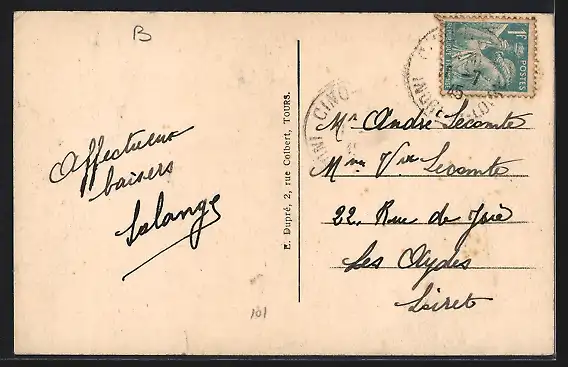 B
Affectueux
baisers
Lalange
E. Dupré, 2, rue Colbert, TOURS.
101
1F
POSTES
7
45
CINQ-
Mr André Lecomte
Mme Vve Lecomte
22, Rue de Joie
Les Aydes
Loiret